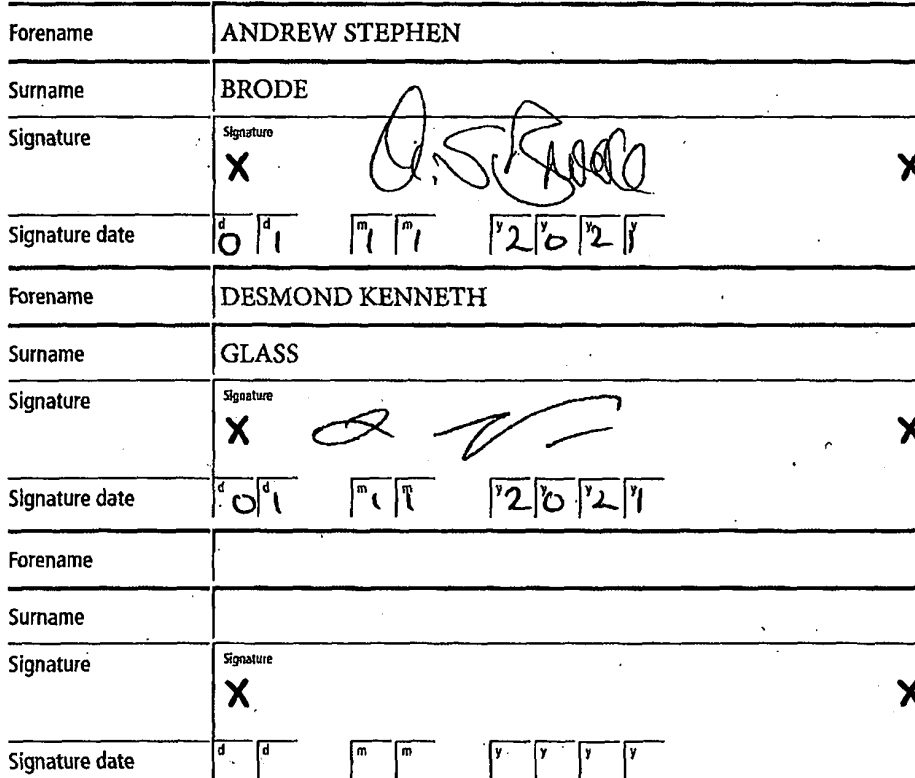 Forename ANDREW STEPHEN
Surname BRODE
Signature Signature
X A.S. Brode X
Signature date d0 d1 m1 m1 y2 y0 y2 y1
Forename DESMOND KENNETH
Surname GLASS
Signature Signature
X X
Signature date d0 d1 m1 m1 y2 y0 y2 y1
Forename
Surname
Signature Signature
X X
Signature date d d m m y y y y